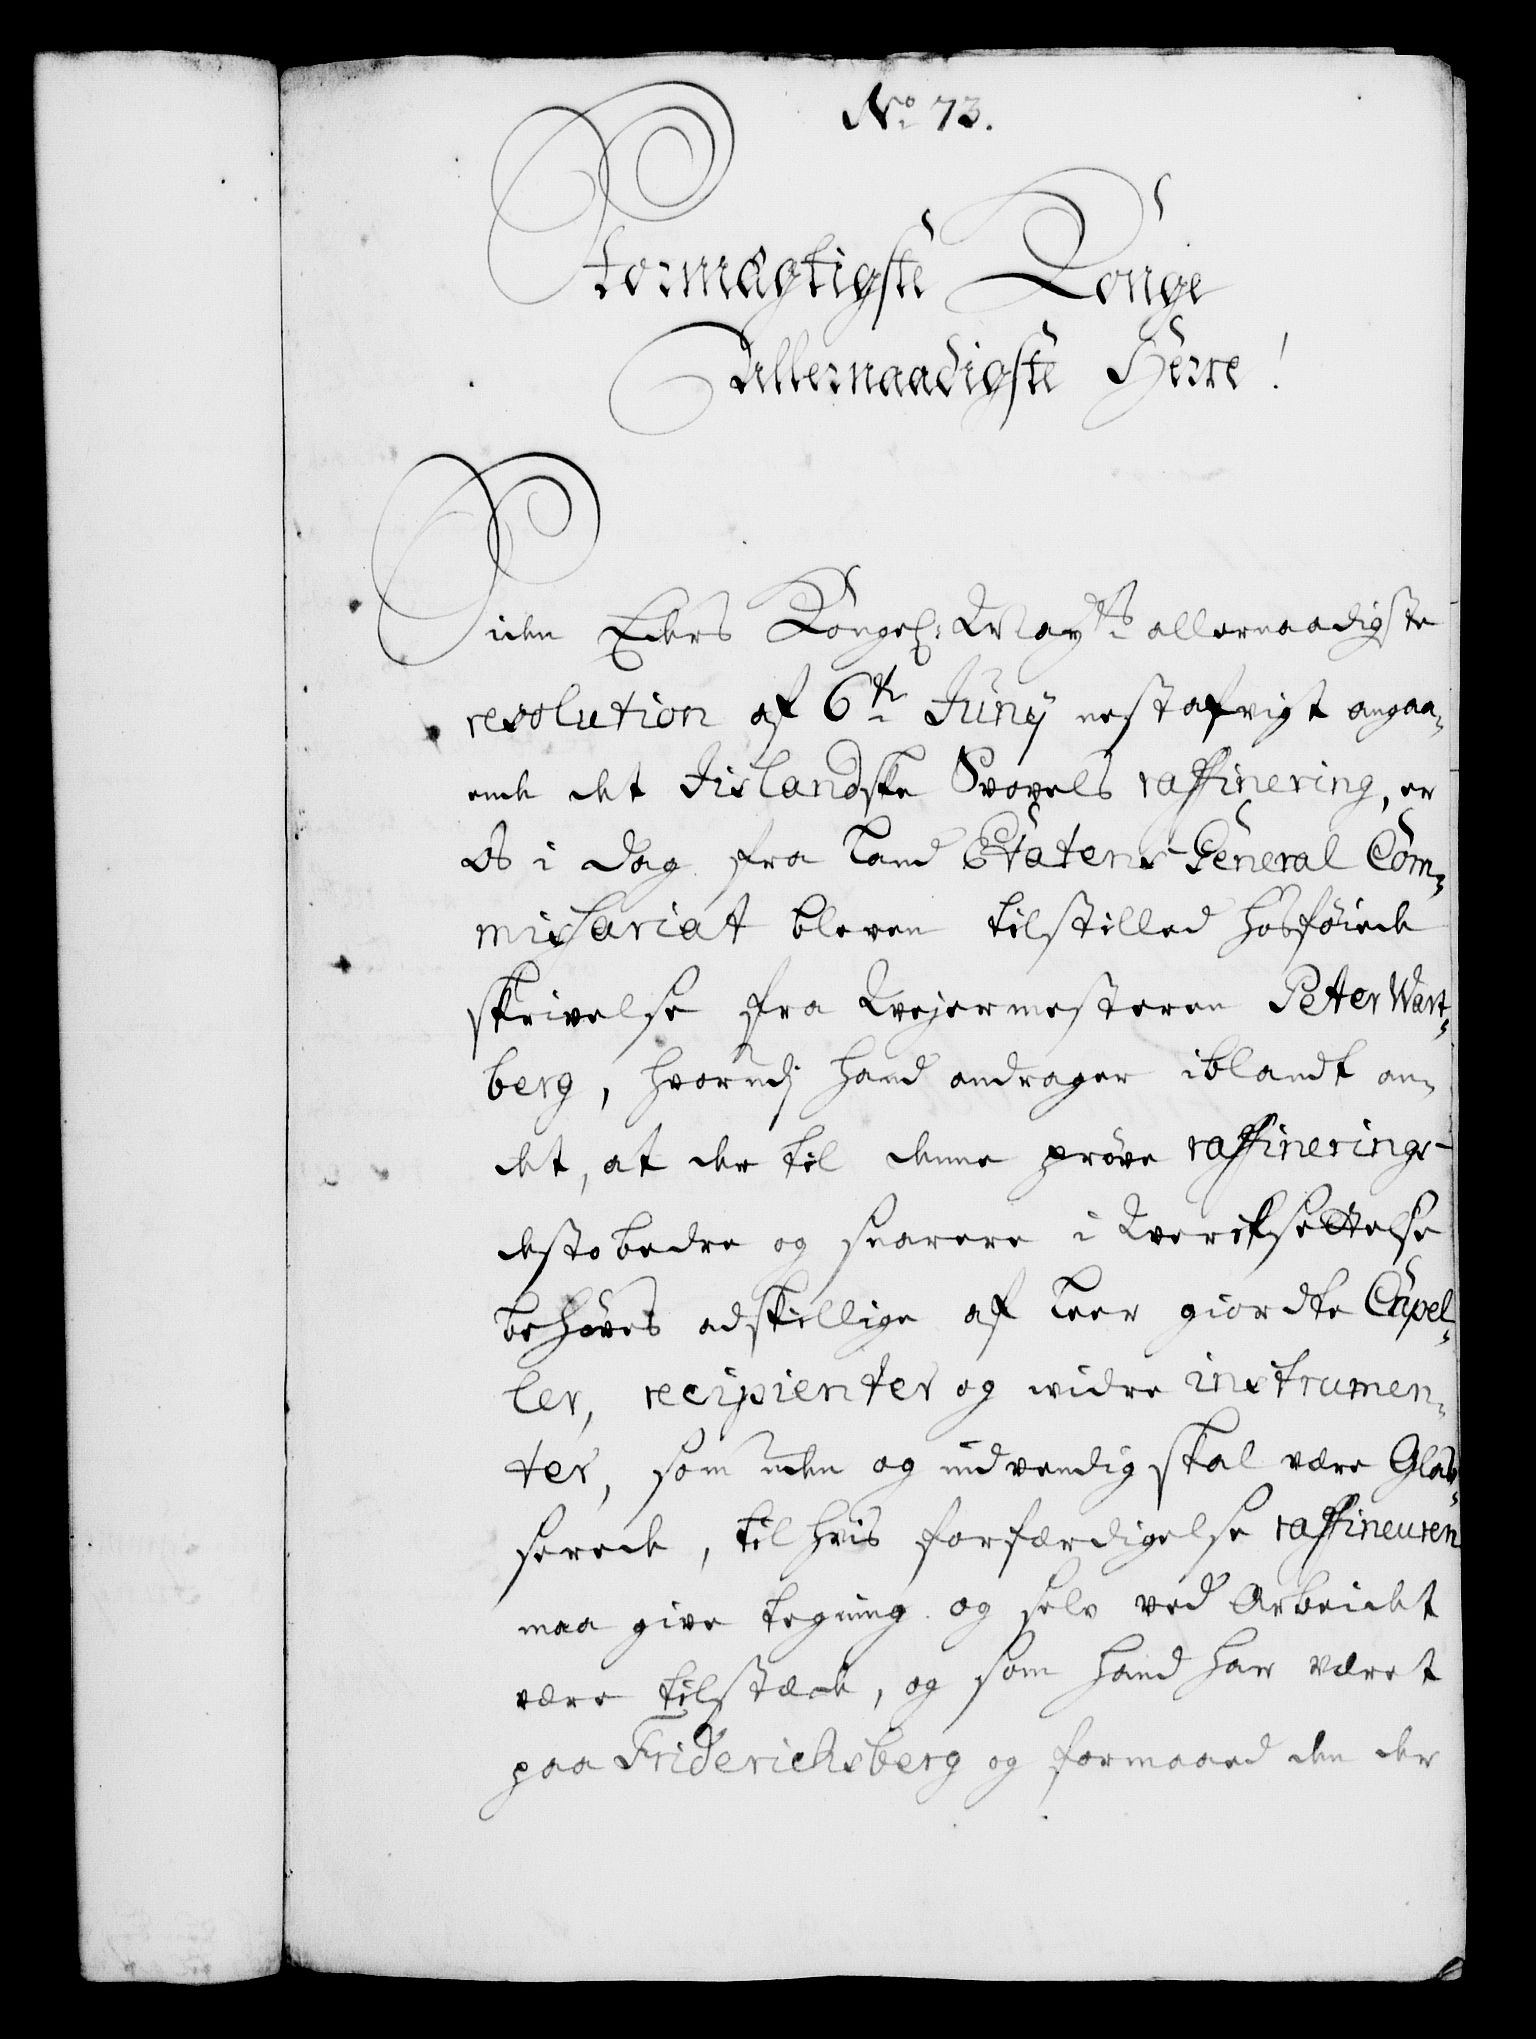 No 73.
Stormægtigste Konge
Allernaadigste Herre!
Siden Eders Kongel: May:ts allernaadigste
resolution af 6te Junÿ nestafvigt angaa-
ende det Jislandske Svovels raffinering, er
os i dag fra Land Etatens General Com-
missariat bleven tilstilled hosføiede
skrivelse fra Weyermesteren Peter Wart-
berg, hvorudj hand andrager iblandt an-
det, at der til denne prøve raffinerings
desto bedre og snarere i Werksettelse
behøves adskillige af Leer giordte Cupel-
ler, recipienter og widre instrumen-
ter, som uden og indvendig skal være Glas-
serede, til hvis forfærdigelse raffineuren
maa give tegning og selv ved Arbeidet
være tilstæde, og som hand har været
paa Friderichsberg og formaaed den der